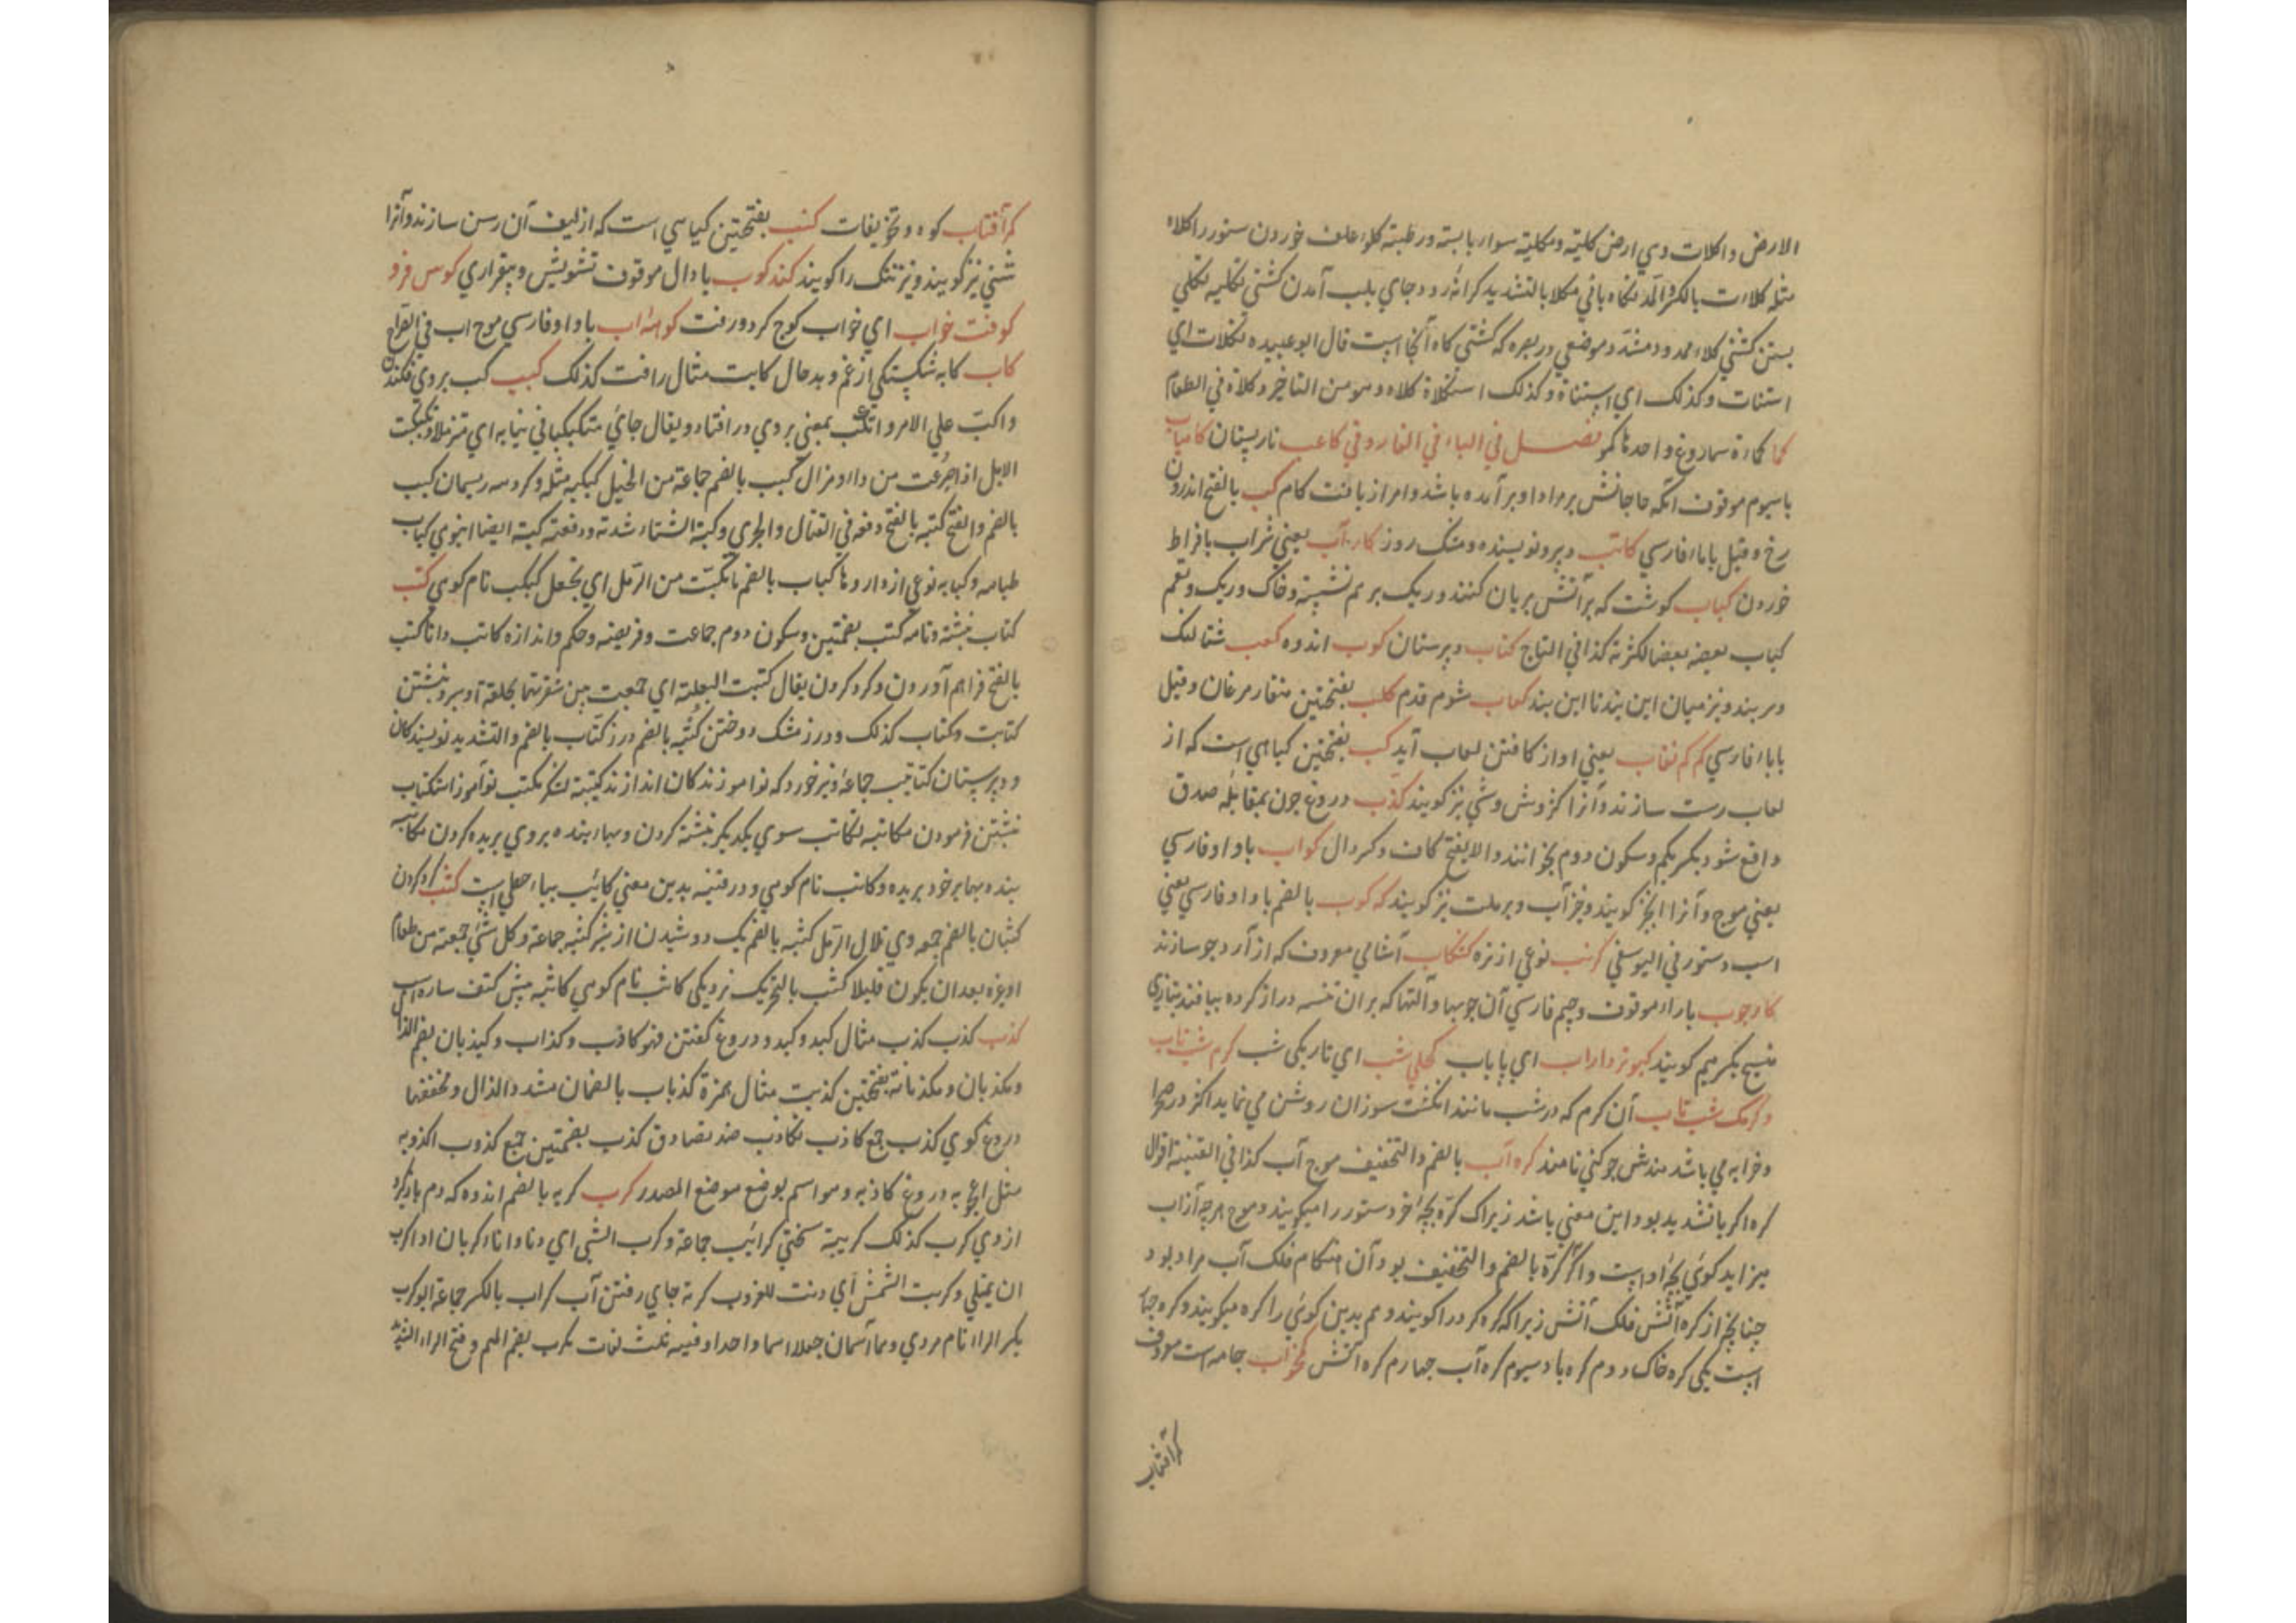 الارض واكلات وي ارض كليته ومكليته سوار بابسته ورطبته كلوء علف خوردن ستور را كلاء
مثله كلاءت بالكسر والمد نكاه باني مكلا بالتشديد كرانه رود و جاي بلب آمدن كشتي تكليه تكلي
بستن كشتي كلاء ممدود و مشدد موضعي در بصره كه كشتي كاه آنجا است قال ابو عبيده تكلات اي
استنات وكذلك اي استناة وكذلك استكلاة كلاه و هو من التاخير وكلاة في الطعام
كما كماءة سماروغ واحدها كمو فصل في الباء في الفارو في كاعب نارپستان كامياب
باسيوم موقوف انكه حاجاتش برمراد او برآمده باشد و امراز يافت كام كب بالفتح اندرون
رخ وقيل باباء فارسي كاتب دبير و نويسنده و مشك روز كار آب يعني شراب بافراط
خوردن كباب كوشت كه بر آتش بريان كنند و ريك بر هم نشسته و خاك و ريك و بقم
كباب بعضه بعضا لكثرته كذا في التاج كتاب دبيرستان كوب اندوه كعب شتالنك
و سر بند و نيز ميان اين بند تا اين بند كعاب شوم قدم كلب بفتحتين منقار مرغان وقيل
باباء فارسي كم كم نقاب يعني اواز كافتن لعاب آيد كب بفتحتين كياهي است كه از
لعاب رست سازند و آنرا كژوش و شي نيز كويند كذب دروغ چون بمقابله صدق
واقع شود بكسر يكم و سكون دوم بخوانند والا بفتح كاف و كسر دال كواب باواو فارسي
يعني موج و آنرا انجز كويند و خزآب و برملت نيز كويند كه كوب بالضم باواو فارسي يعني
اسب و ستور في اليوسفي كرنب نوعي از تره كشكاب آشامي معروف كه از آرد جو سازند
كارچوب باراء موقوف و چيم فارسي آن چوبها و آلتها كه بران تنسه دراز كرده ببافند بتازي
منسج بكسر ميم كويند كبوتر داراب اي باباب كحلي شب اي تاريكي شب كرم شب تاب
و كرمك شب تاب آن كرم كه در شب مانند انكشت سوزان روشن مي نمايد اكثر در صحرا
و خرابه مي باشد هندش جوكني نامند كره آب بالضم والتخفيف موج آب كذا في القنية اقول
كره اكر باتشديد بود اين معني باشد زيراك كره بچه خر و ستور را ميكويند و موج هرچه از آب
ميزايد كوئي بچه او است و اكر كره بالضم والتخفيف بود آن هنكام فلك آب مراد بود
چنانچه از كره آتش فلك آتش زيرا كه كره كرد را كويند و هم بدين كوئي را كره ميكويند و كره چهار
است يكي كره خاك دوم كره باد سيوم كره آب چهارم كره آتش كخواب جامه است معروف
كرآفتاب
كرآفتاب كوه و تخويفات كنب بفتحتين كياهي است كه از ليف آن رسن سازند و آنرا
شني نيز كويند و نيز تنك را كويند كند كوب بادال موقوف تشويش و بيقراري كوس فرو
كوفت خواب اي خواب كوچ كرد و رفت كوهه آب باواو فارسي موج اب في القراح
كاب كابه شكستكي از غم و بد حال كابت مثال رافت كذلك كبيب كب بروي فكندن
و اكب علي الامر و انكب بمعني بروي در افتاد و يقال جائي متكبكبا في ثيابه اي متزملا و تكببت
الابل اذا صرعت من داء او هزال كبب بالضم جماعة من الخيل كبكبه مثله و كروهه ريسمان كبب
بالضم والفتح كبته بالفتح دفعه في القتال والجري وكبة الشتاء شدته ودفعته كبته ايضا انبوهي كباب
طباهه و كبابه نوعي از داروها كباب بالضم ماتكبب من الرمل اي تجعل كبكب نام كوهي كتب
كتاب نبشته و نامه كتب بضمتين و سكون دوم جماعت و فريضه و حكم و اندازه كاتب دانا كتب
بالفتح فراهم آوردن و كرد كردن يقال كتبت البغلة اي جمعت بين شفرتيها بحلقة او سير و نبشتن
كتابت و كتاب كذلك و درز مشك دوختن كتبه بالضم درز كتاب بالضم والتشديد نويسندكان
و دبيرستان كتائب جماعة و تير خورد كه نواموزندكان اندازند كتيبه لشكر مكتب نوآموز استكتاب
نبشتن فرمودن مكاتبه تكاتب سوي يكديكر نبشته كردن و بهاء بنده بروي بريده كردن مكاتب
بنده بها بر خود بريده و كاتب نام كوهي و در قنيه بدين معني كائب بياء حطي است كثب كرد كردن
كثبان بالضم جمعه و هي تلال الرمل كثبه بالضم يك دوشيدن از شير كثبه جماعة و كل شي جمعته من طعام
او غيره بعد ان يكون قليلا كثب بالتحريك نزديكي كاثب نام كوهي كاثبه پيش كتف ساره اسپ
كذب كذب كذب مثال كبد و كبد و دروغ كفتن فهو كاذب و كذاب و كيذبان بضم الذال
و مكذبان و مكذبانة بفتحتين كذبت مثال همزة كذباب بالضمان مشدد الذال و مخففها
دروغ كوي كذب جمع كاذب تكاذب ضد تصادق كذب بضمتين جمع كذوب اكذوبه
مثل اعجوبه دروغ كاذبه و هو اسم يوضع موضع المصدر كرب كربه بالضم اندوه كه دم باز كيرد
از وي كرب كذلك كريبه سختي كرائب جماعة و كرب الشي اي دنا و اناء كربان اذا كرب
ان يمتلي و كربت الشمس اي دنت للغروب كربه جاي رفتن آب كراب بالكسر جماعة ابوكرب
بكسر الراء نام مردي و هما اسمان جعلا اسما واحدا و فيه ثلث لغات يكرب بضم الميم و فتح الراء التشديد